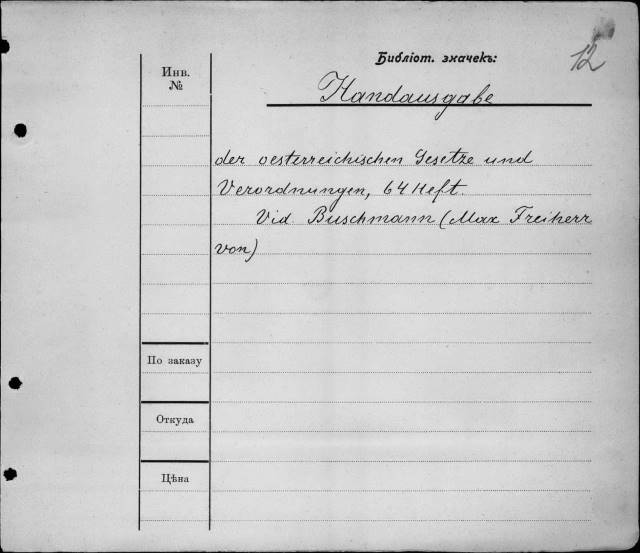 Библіот. значекъ:
12
Инв.
№
Handausgabe
der oesterreichischen Gesetze und
Verordnungen, 64 Heft.
Vid. Buschmann (Max Freiherr
von)
По заказу
Откуда
Цѣна